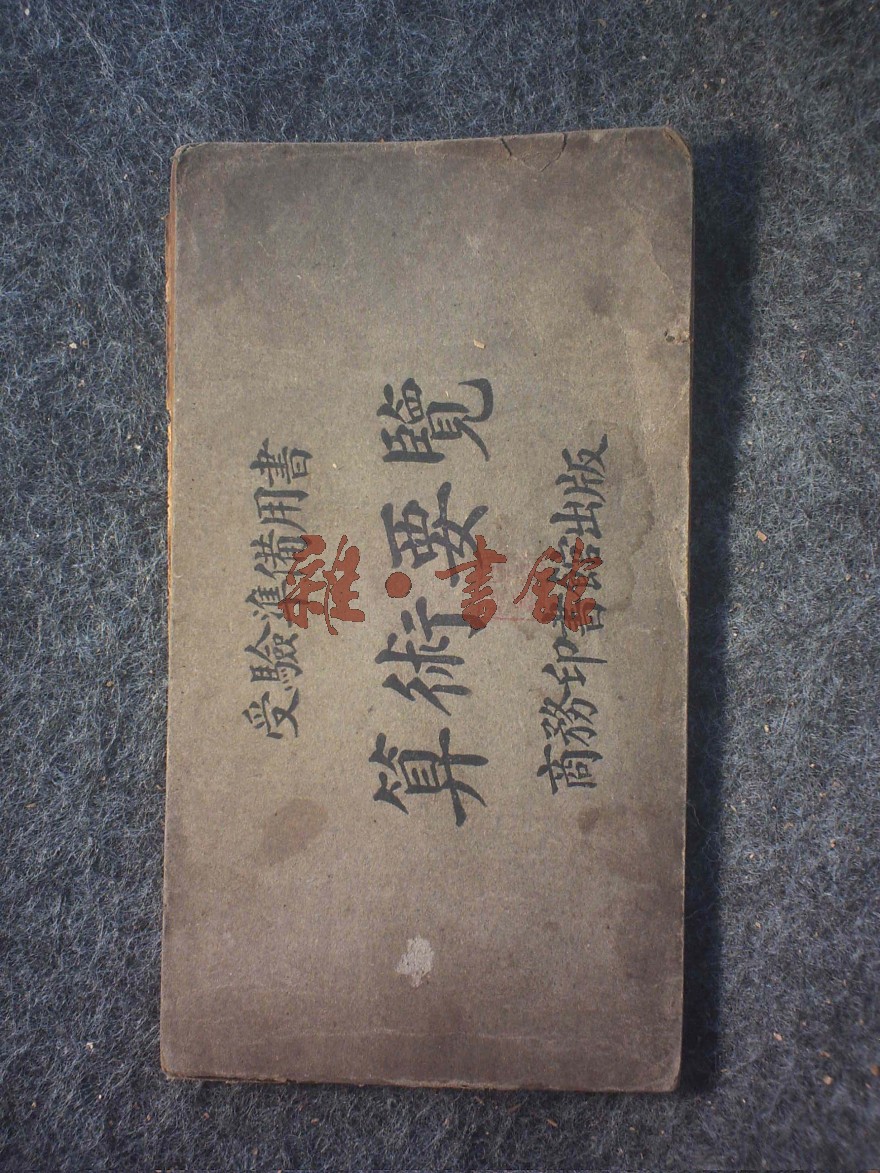 受驗準備用書
算術要覽
商務印書館出版